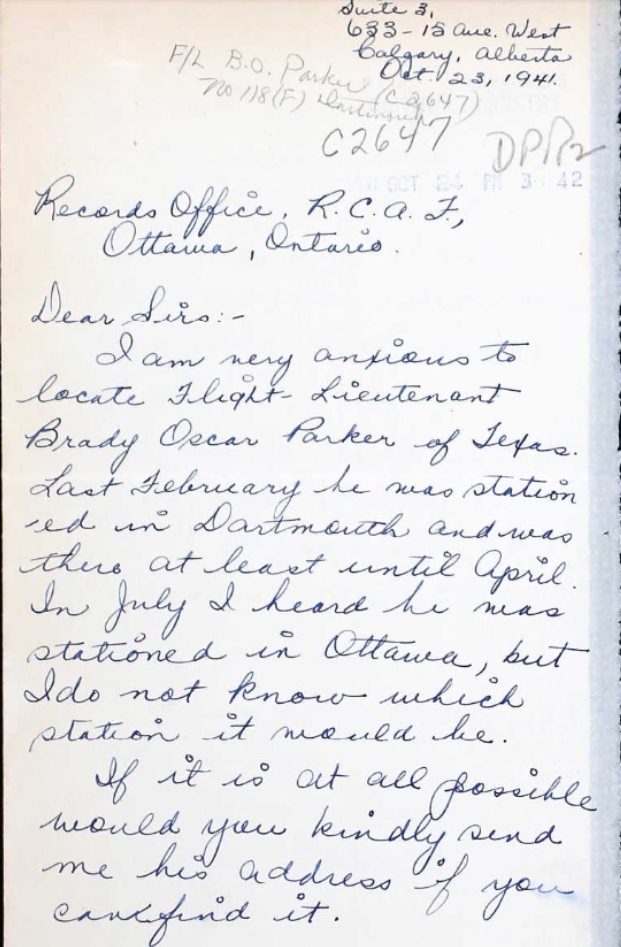 Suite 3,
633-15 Ave. West
Calgary, Alberta
Oct. 23, 1941.
F/L B.O. Parker
No 118(F) Dartmouth (C2647)
C2647
OCT 24 PM 3 42
Records Office, R.C.A.F.,
Ottawa, Ontario.
Dear Sirs:-
I am very anxious to
locate Flight-Lieutenant
Brady Oscar Parker of Texas.
Last February he was station
-ed in Dartmouth and was
there at least until April.
In July I heard he was
stationed in Ottawa, but
I do not know which
station it would be.
If it is at all possible
would you kindly send
me his address if you
can find it.